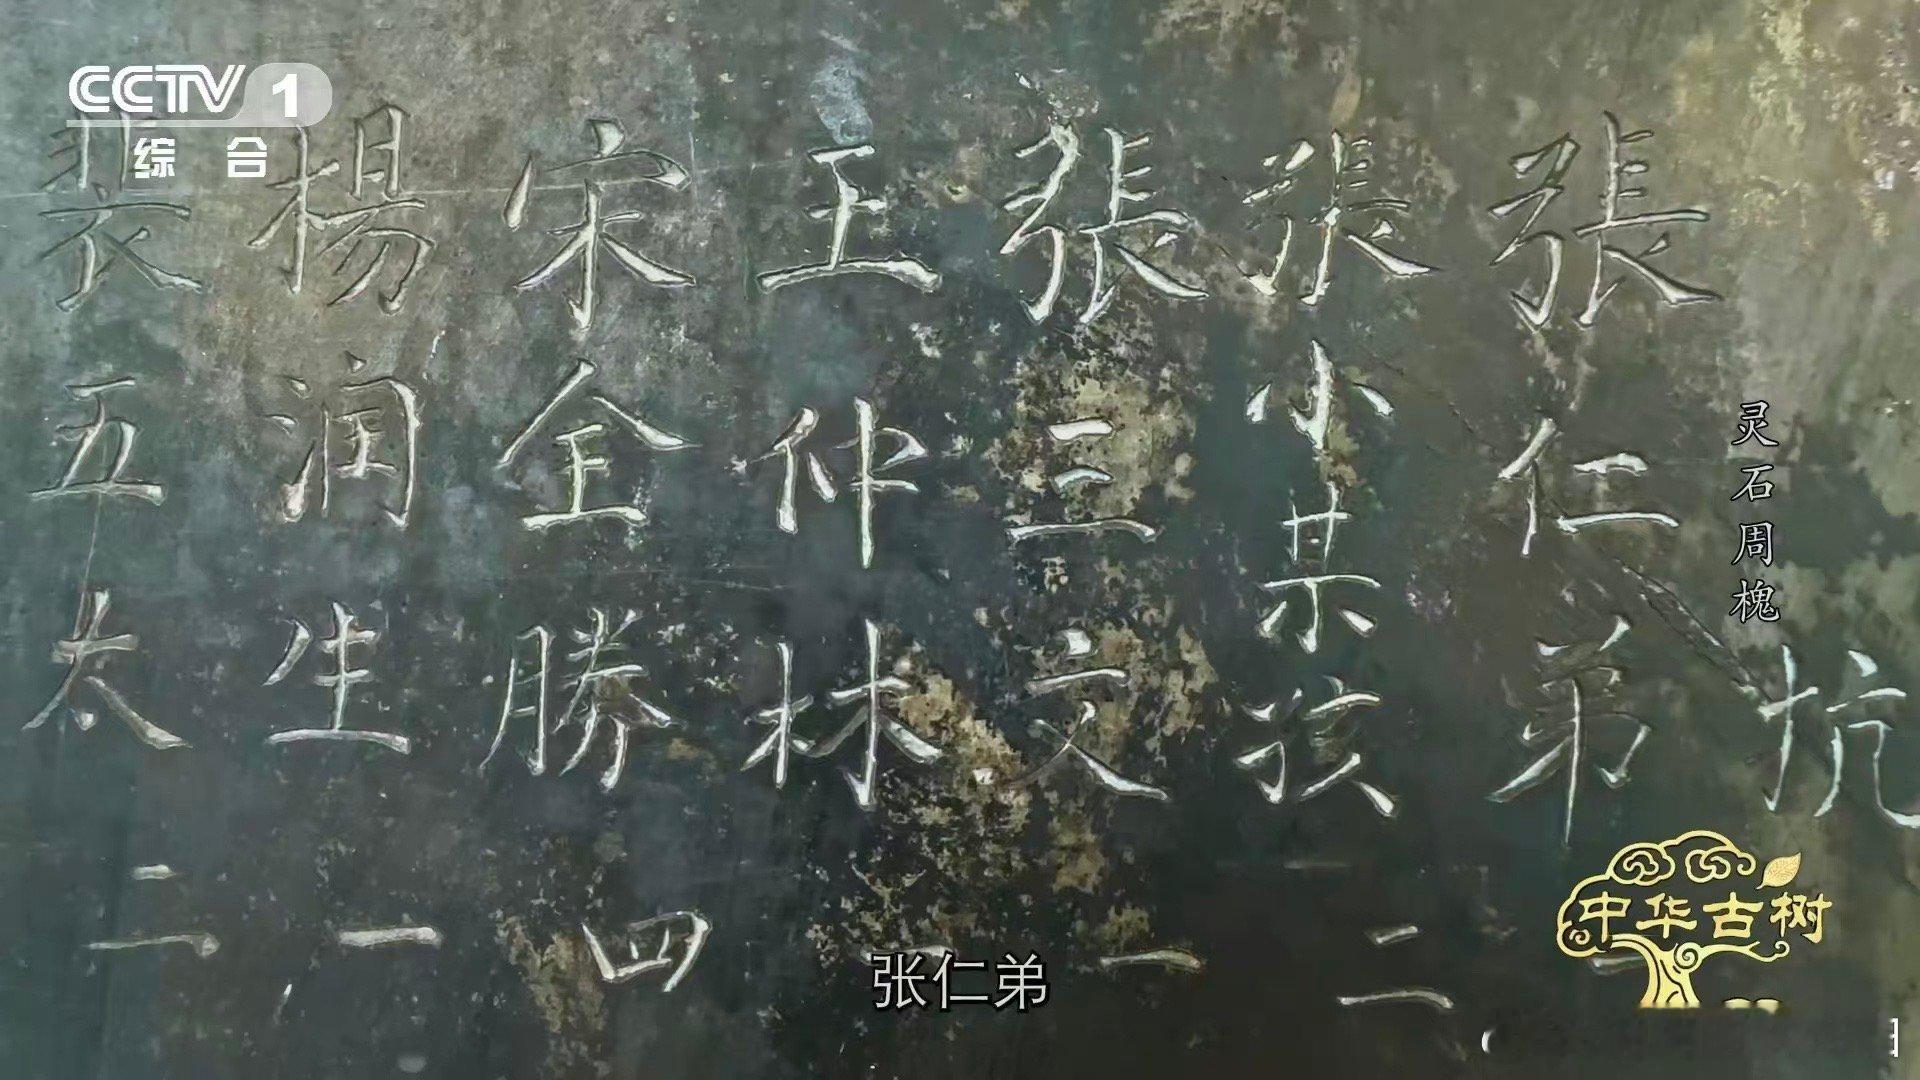 CCTV 1
综合
灵石周槐
抗
張仁弟
張小某孩 二
張三文 一
王仲林 一
宋全勝 四
楊润生 一
裴五太 二
张仁弟
中华古树